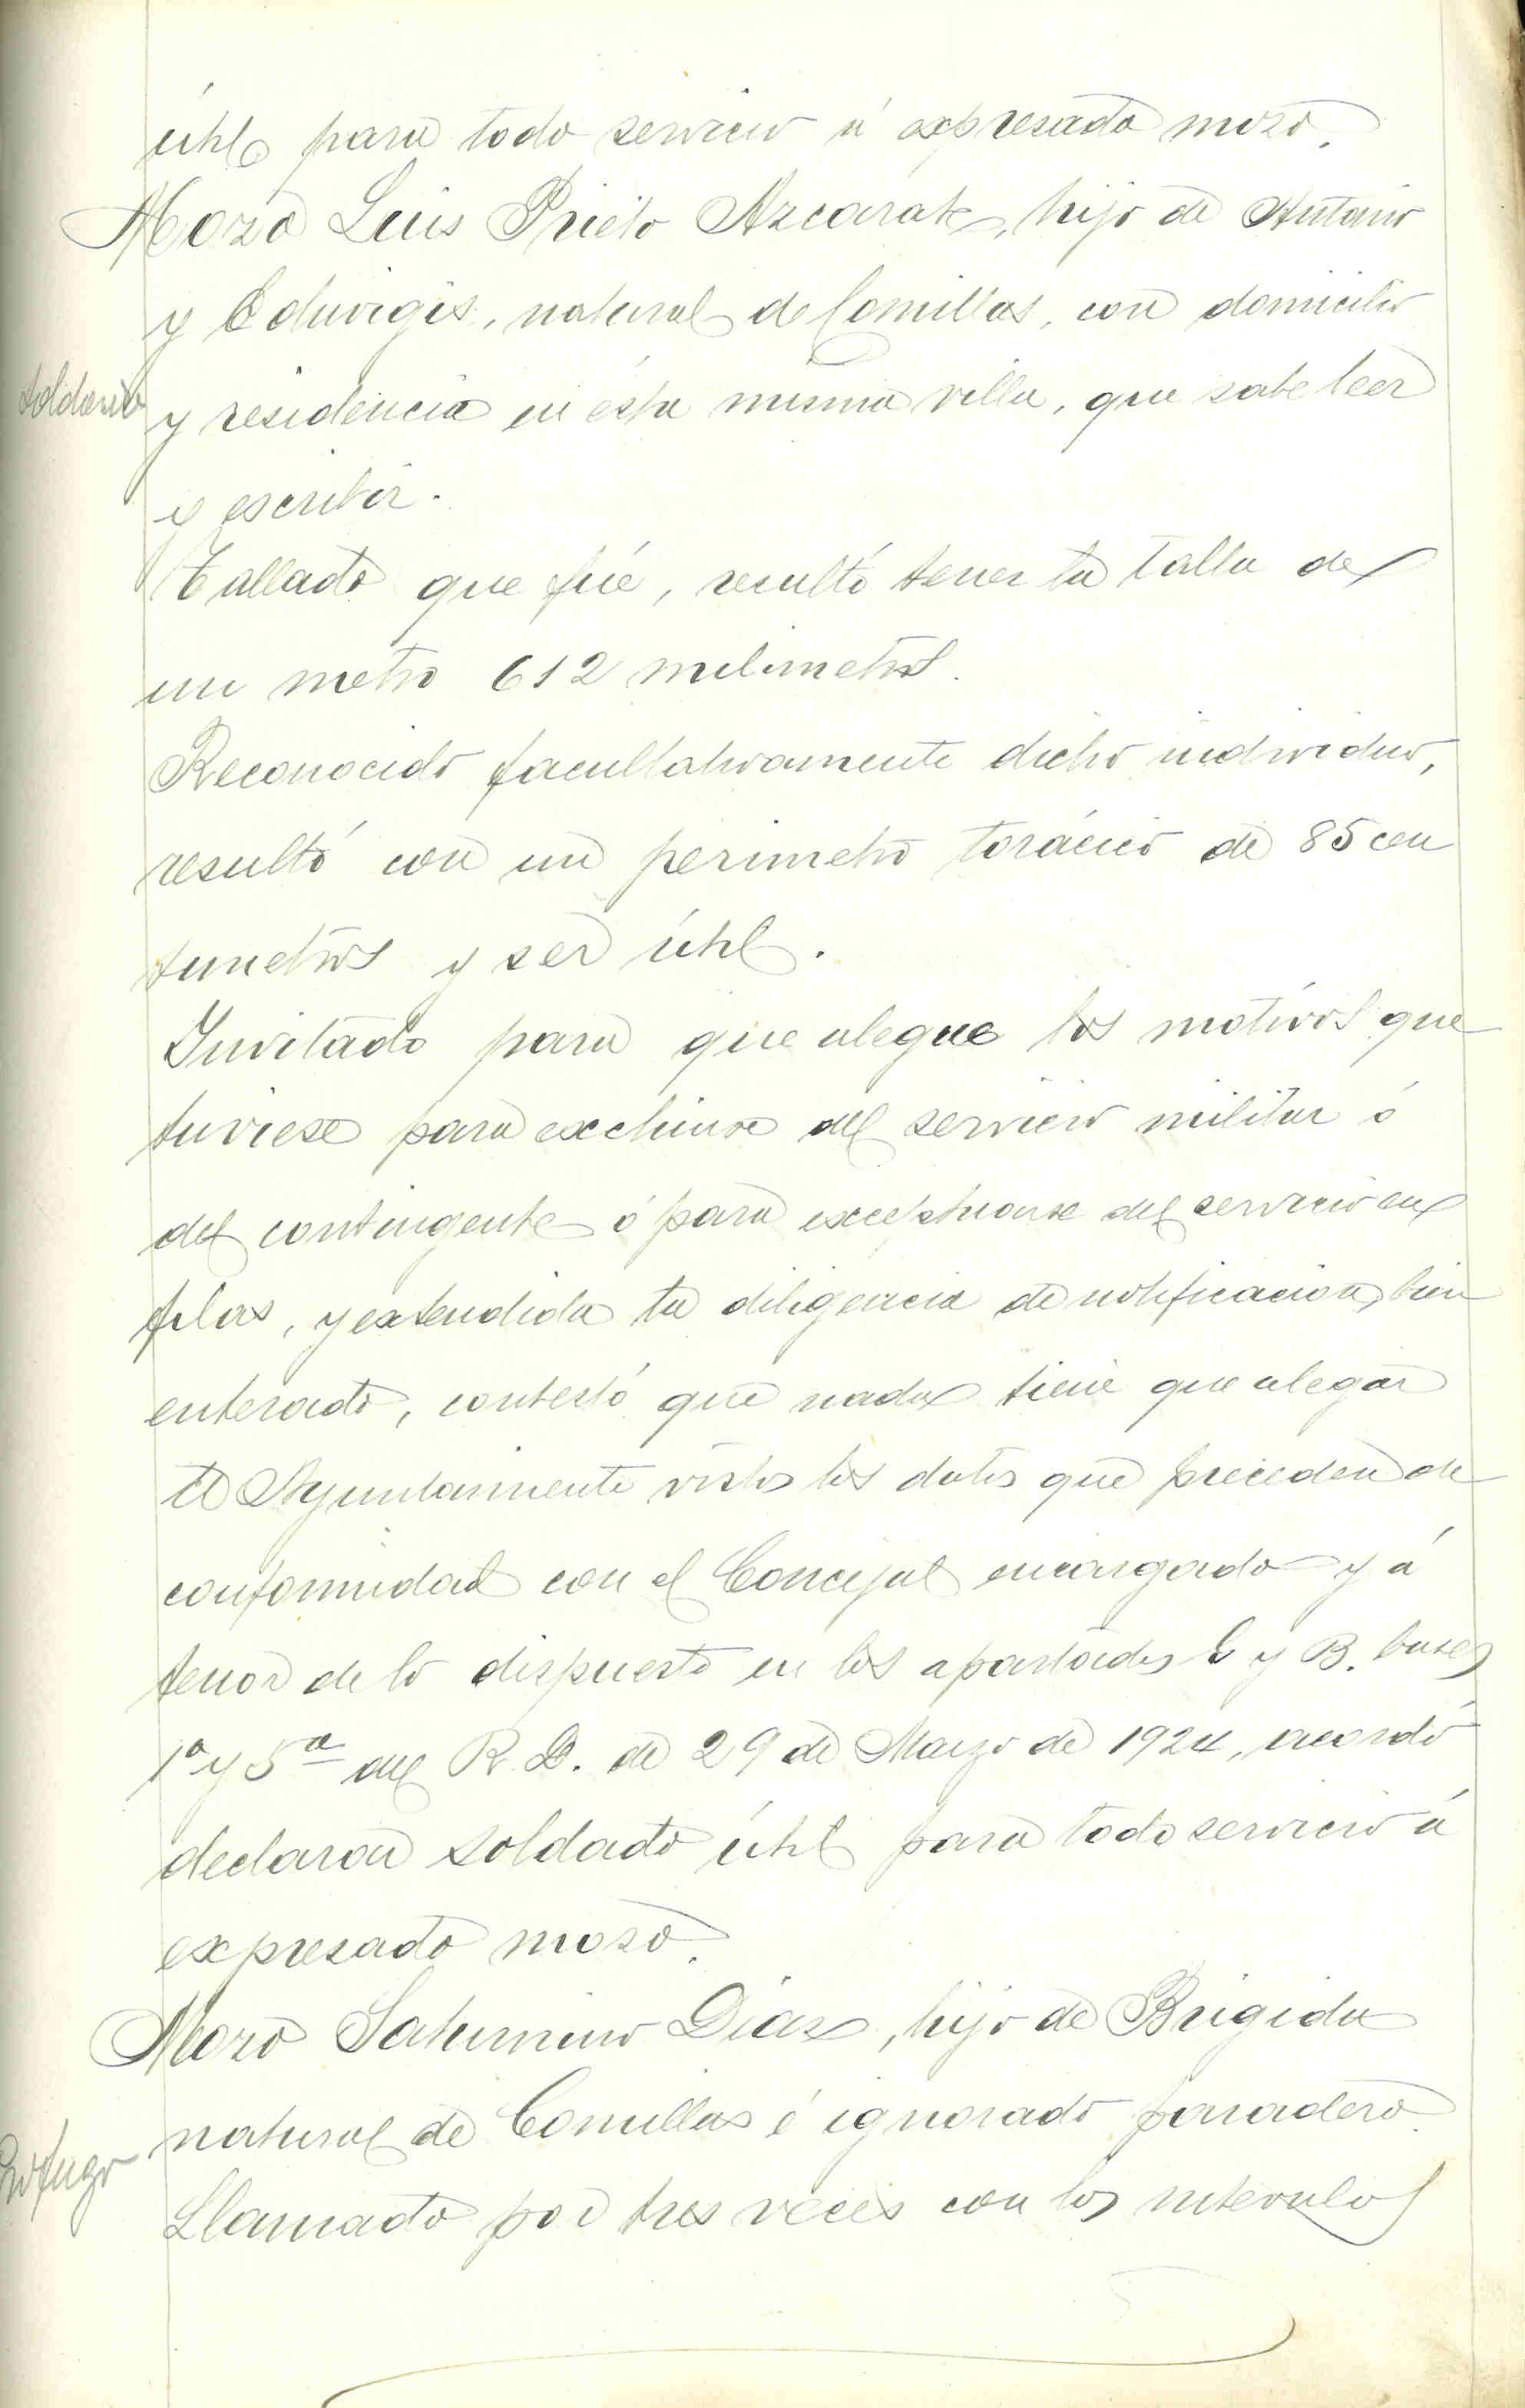 útil para todo servicio á expresado mozo.
Mozo Luis Prieto Azcarate, hijo de Antonio
y Eduvigis, natural de Comillas, con domicilio
Soldado
y residencia en ésta misma villa, que sabe leer
y escribir.
Tallado que fué, resultó tener la talla de
un metro 612 milimetros.
Reconocido facultativamente dicho individuo,
resultó con un perimetro torácico de 85 cen
timetros y ser útil.
Invitado para que alegue los motivos que
tuviese para excluirse del servicio militar ó
del contingente ó para exceptuarse del servicio en
filas, y extendida la diligencia de notificacion, bien
enterado, contestó que nada tiene que alegar
El Ayuntamiento vistos los datos que preceden de
conformidad con el Concejal encargado y á
tenor de lo dispuesto en los apartados y B. bases
1ª y 5ª del R. D. de 29 de Marzo de 1924, acordó
declarar soldado útil para todo servicio á
expresado mozo.
Mozo Saturnino Diaz, hijo de Brigida
natural de Comillas é ignorado paradero.
Profugo
Llamado por tres veces con los intervalos